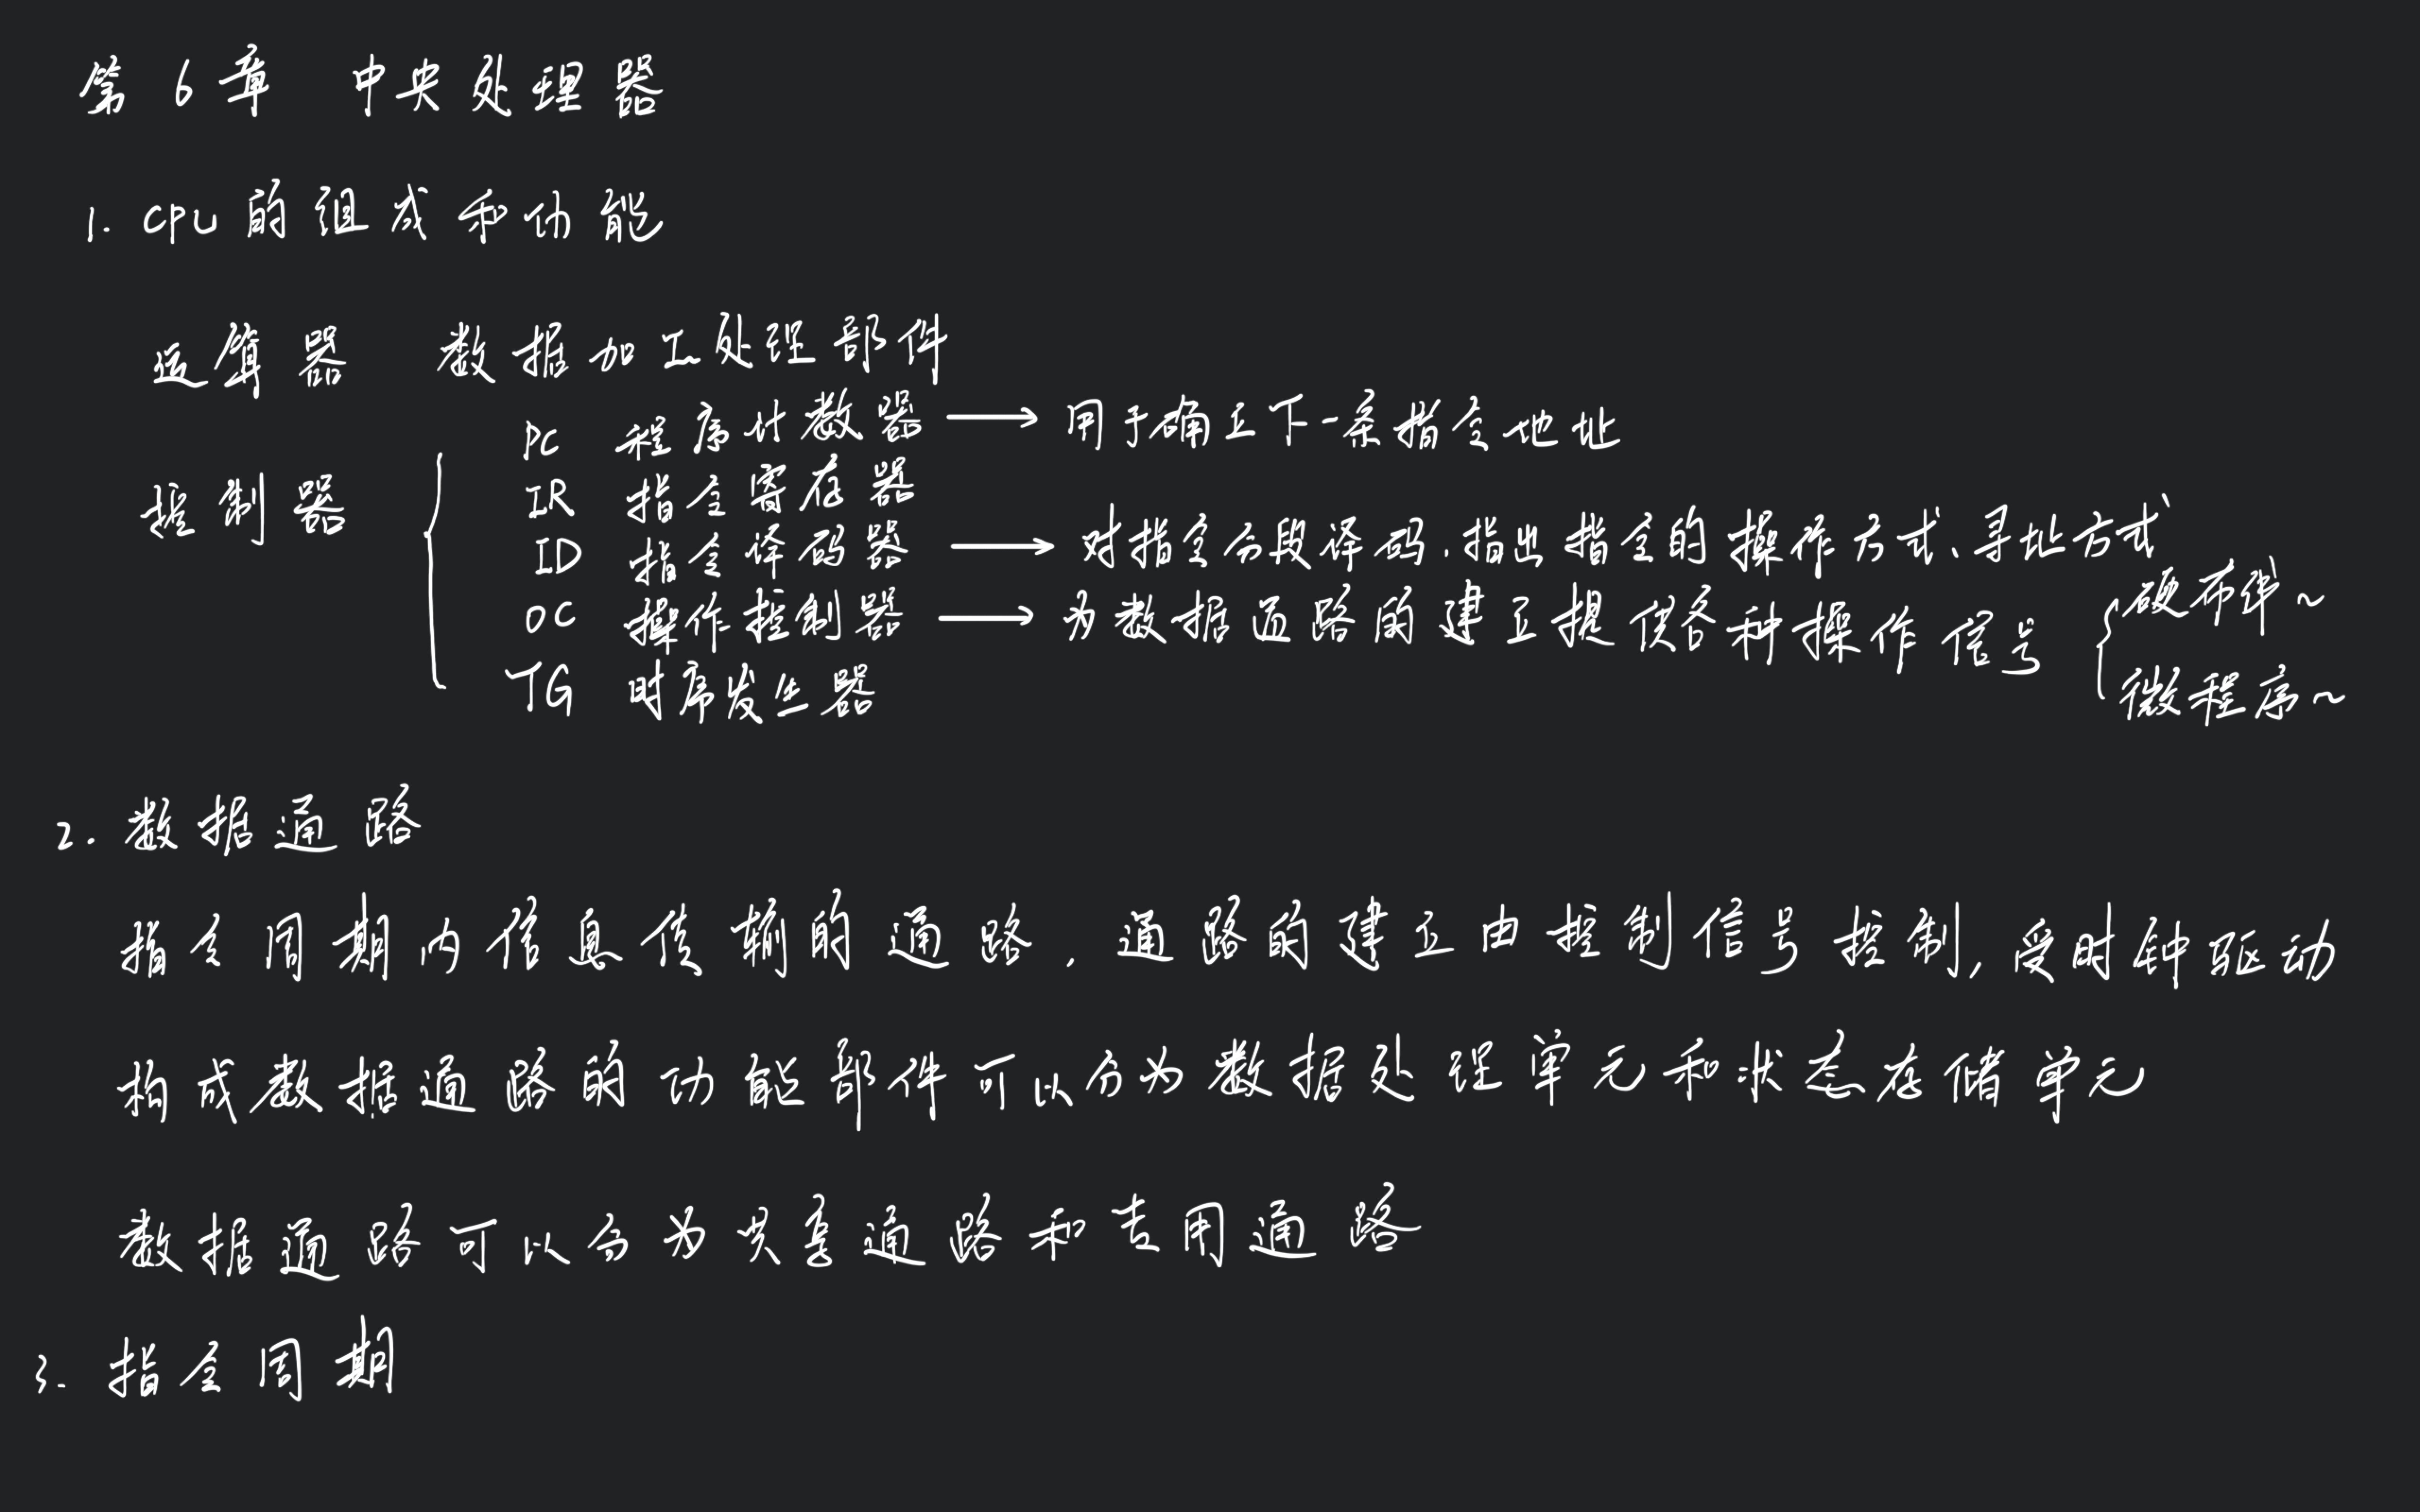 第6章 中央处理器
1. CPU的组成和功能
运算器 数据加工处理部件
控制器
PC 程序计数器 → 用于确立下一条指令地址
IR 指令寄存器
ID 指令译码器 → 对指令分段译码,指出指令的操作方式、寻址方式
OC 操作控制器 → 为数据通路的建立提供各种操作信号
硬布线~
微程序~
TG 时序发生器
2. 数据通路
指令周期内信息传输的通路,通路的建立由控制信号控制,受时钟驱动
构成数据通路的功能部件可以分为数据处理单元和状态存储单元
数据通路可以分为共享通路和专用通路
3. 指令周期